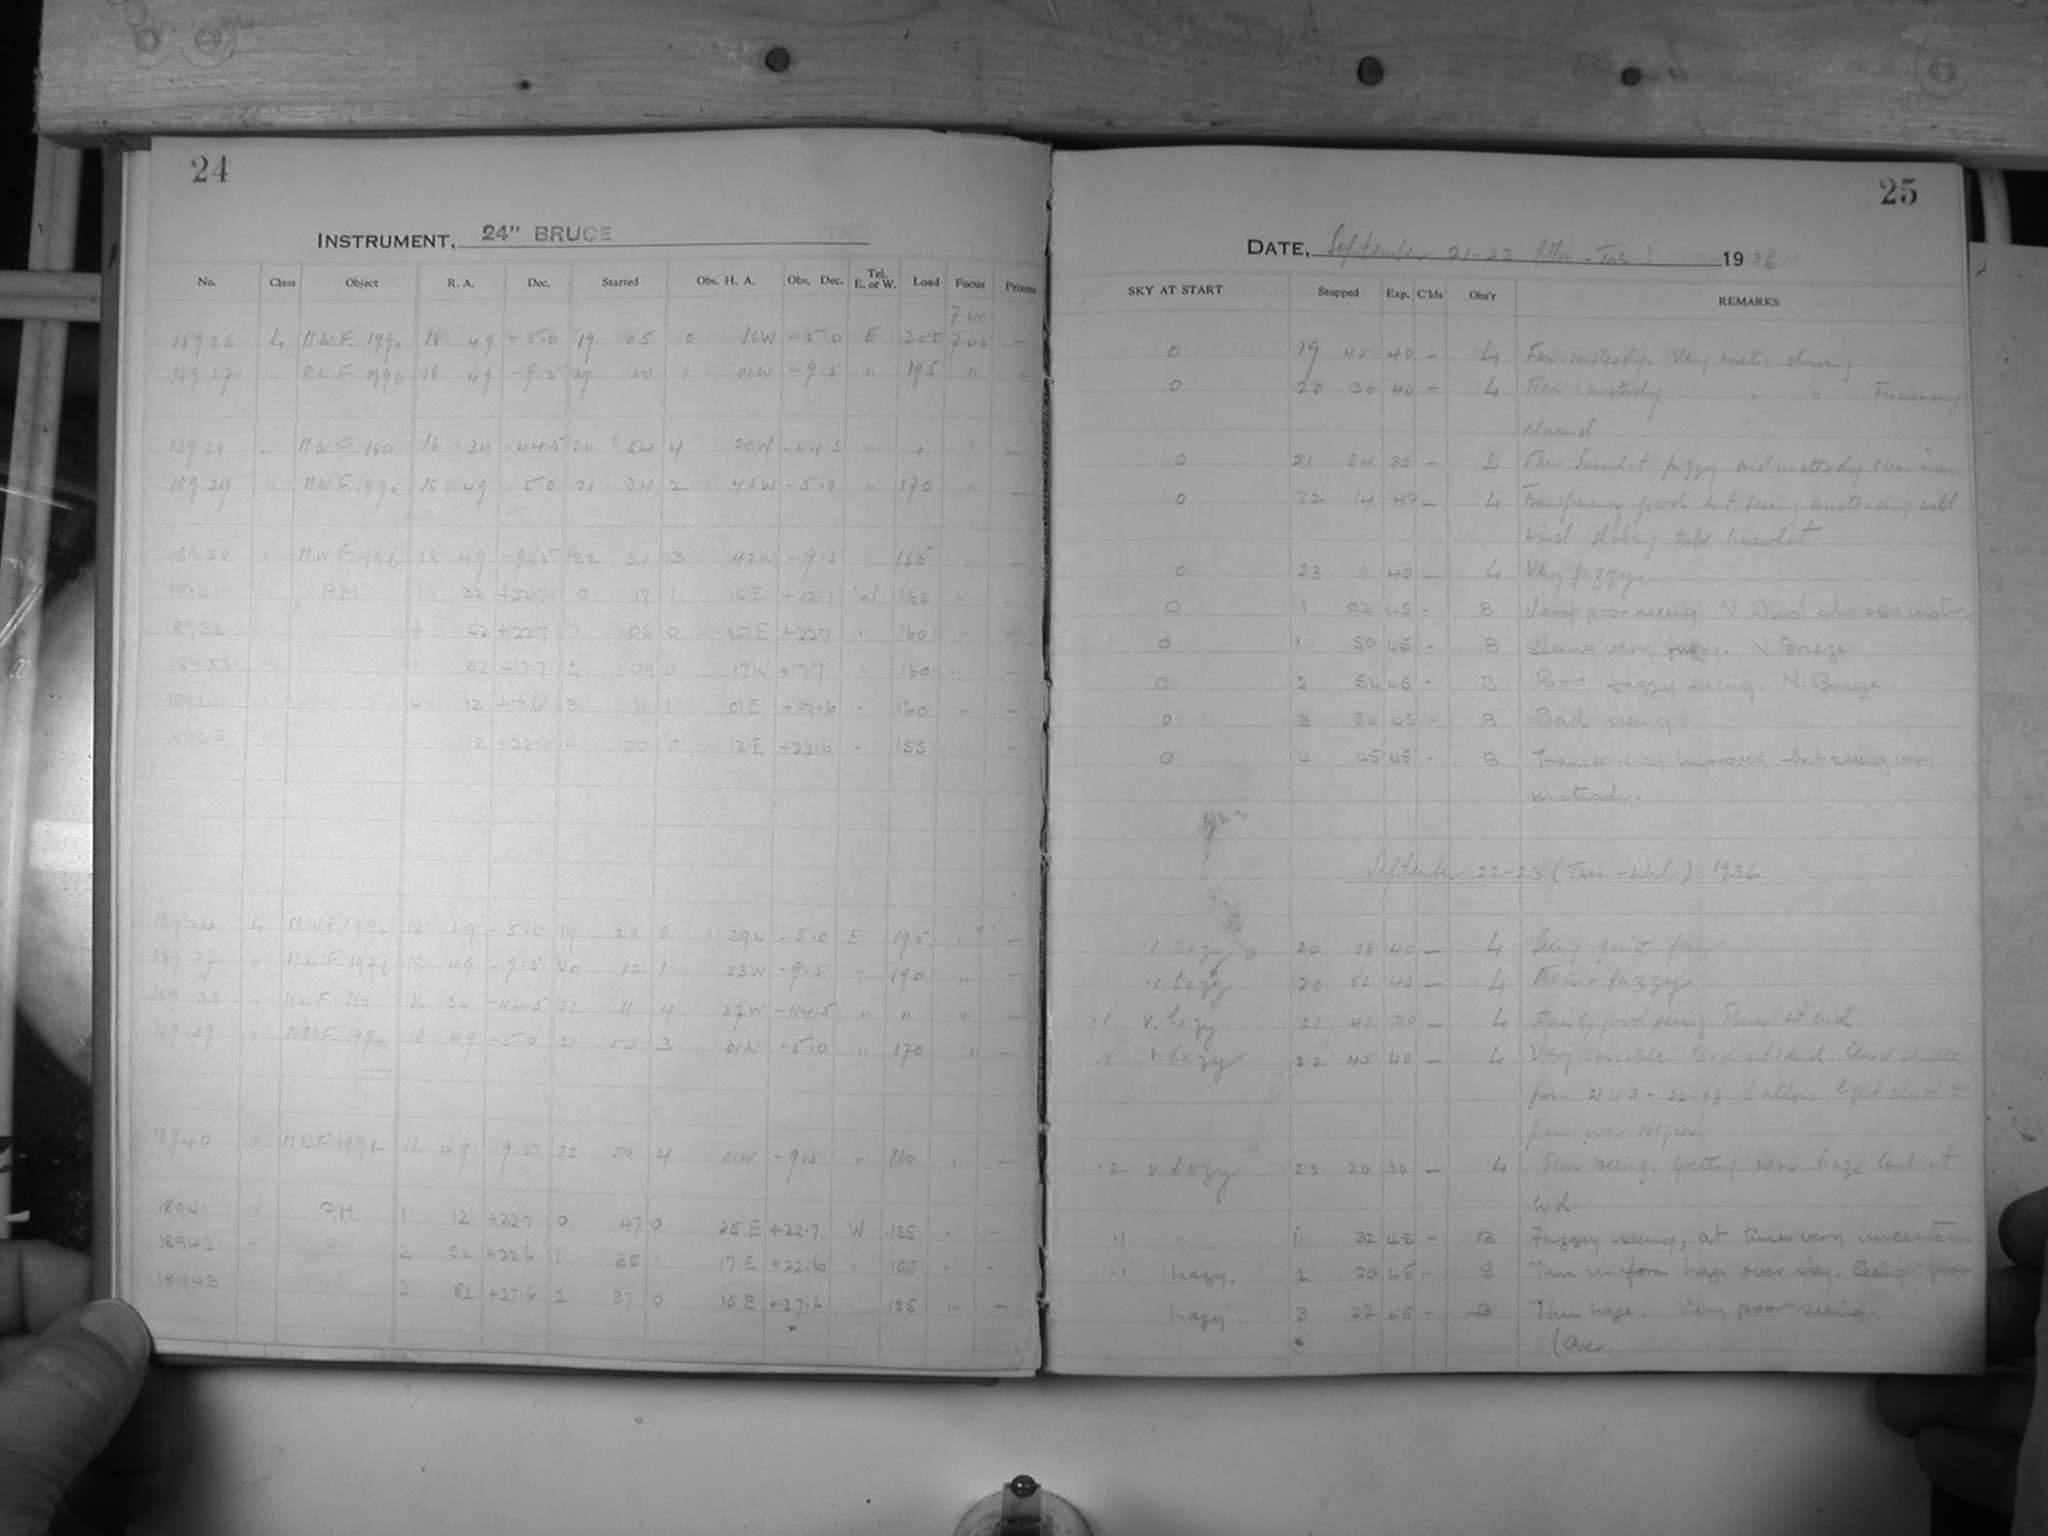 24
INSTRUMENT, 24" BRUCE
No. Class Object R. A. Dec. Started Obs. H. A. Obs. Dec. Tel. E. or W. Load Focus Prisms
7.40
18926 L M.W.F. 199a 18 49 -5.0 19 05 0 16W -5.0 E 200 —
18927 " M.W.F. 199b 18 49 -9.5 19 50 1 01W -9.5 " 195 " —
18928 M.W.F. 180 16 34 -44.5 20 54 4 20W -44.5 " " " —
18929 " M.W.F. 199a 18 49 -5.0 21 34 2 45W -5.0 " 170 " —
18930 " M.W.F. 199b 18 49 -9.5 22 31 3 42W -9.5 " 165 " —
18931 P.M. 32 +22.7 0 17 1 15E +22.7 W 165 " —
18932 52 +22.7 05 0 47E +22.7 " 160 " —
18933 52 +17.7 2 09 0 17W +17.7 " 160 " —
18934 4 12 +17.6 3 11 1 01E +17.6 - 160 " —
18935 12 +22.6 4 00 0 12E +22.6 - 155 " —
18936 L M.W.F. 199a 18 49 -5.0 19 28 0 39W -5.0 E 195 " —
18937 " M.W.F. 199b 18 49 -9.5 20 12 1 23W -9.5 " 190 " —
18938 " M.W.F. 180 16 34 -44.5 21 11 4 37W -44.5 " " " —
18939 " M.W.F. 199a 18 49 -5.0 21 50 3 01W -5.0 " 170 " —
18940 " M.W.F. 199b 18 49 -9.5 22 50 4 01W -9.5 " 160 " —
18941 " P.M. 1 12 +22.7 0 47 0 25E +22.7 W 155 " —
18942 " 2 52 +22.6 1 35 1 17E +22.6 " 155 " —
18943 " 2 52 +27.6 2 37 0 15E +27.6 " 155 " —
25
DATE, September 21-22 (Mon - Tues) 1936
SKY AT START Stopped Exp. C'lds Obs'r REMARKS
0 19 45 40 — L Fair-unsteady. Very erratic driving
0 20 30 40 — L Fair unsteady " " . Increasing
N wind
0 21 24 30 — L Fair Somewhat fuzzy and unsteady Near moon
0 22 14 40 — L Transparency good but seeing unsteady with
wind shaking tube somewhat
0 23 11 40 — L Very fuzzy.
0 1 02 45 - B Very poor seeing N Wind shakes instr.
0 1 50 45 - B Seeing very fuzzy. N Breeze
0 2 54 45 - B Poor fuzzy seeing. N. Breeze.
0 3 56 45 - B Bad seeing.
0 4 45 45 - B Transparency improved but seeing very
unsteady.
September 22-23 (Tues - Wed.) 1936
.1 hazy 20 08 40 — L Seeing quite fair
.1 hazy 20 52 40 — L Fair - fuzzy.
.1 v. hazy 21 41 30 — L Fairly good seeing. Poor at end
.1 v. hazy 22 45 40 — L Very variable. Bad at end. Closed shutter
from 21:53 - 22:08 to allow light cloud to
pass over region
.2 v. hazy 23 20 30 — L Poor seeing. Getting near haze bank at
end.
.1 " 1 32 45 - B Fuzzy seeing, at times very uncertain.
.1 hazy. 2 20 45 - B Thin uniform haze over sky. Seeing poor
hazy. 3 22 45 - B Thin haze. Very poor seeing.
(Over.